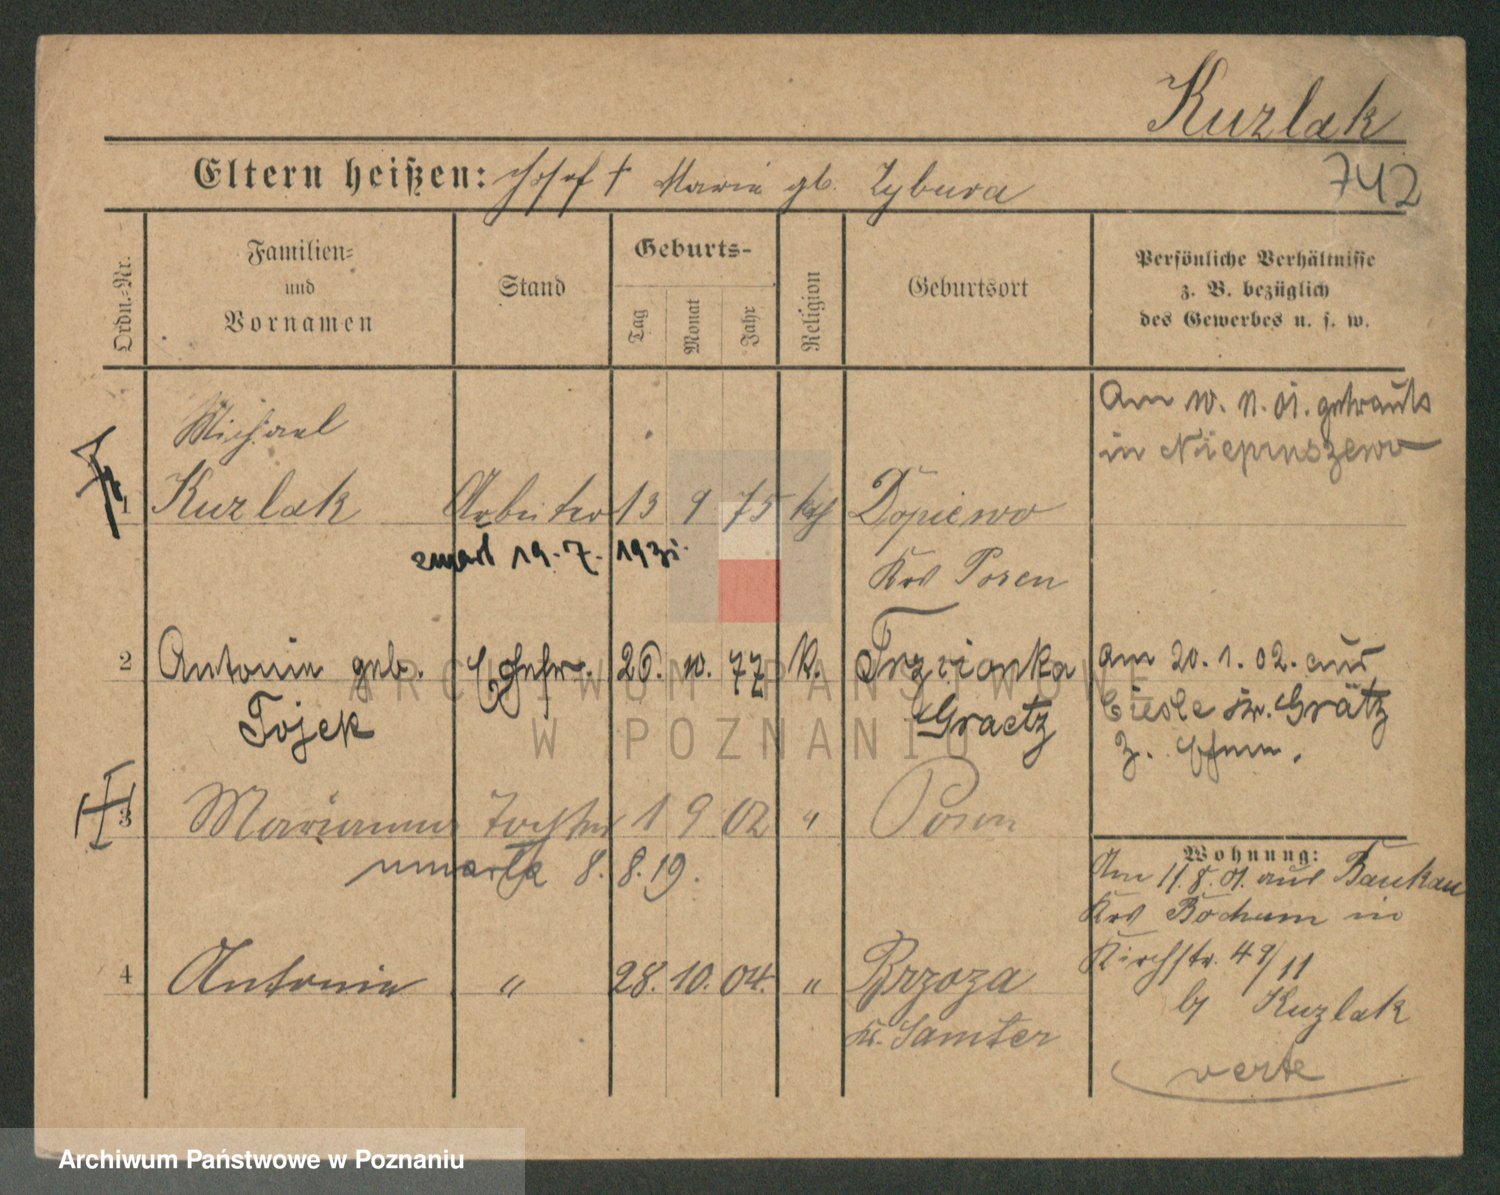 Kuzlak
742
Eltern heißen: Josef † Marie gb. Zybura
Ordn.-Nr.
Familien-
und
Vornamen
Stand
Geburts-
Tag
Monat
Jahr
Religion
Geburtsort
Persönliche Verhältnisse
z. B. bezüglich
des Gewerbes u. s. w.
Michael
1 Kuzlak Arbeiter 13 9 75 kath Dopiewo
zmarł 19. 7. 193
Krs Posen
Am 10. 11. 01. getraut
in
2 Antonie geb. Ehefr. 26. 10. 77 k. Trzcionka
Tojek Graetz
am 20. 1. 02. aus
Kr. Grätz
z. Ehem.
3 Marianna Tochter 1 9 02 " Posen
umarła 8. 8. 19.
4 Antonie " 28. 10. 04. " Brzoza
Kr. Samter
Wohnung:
Am 11. 8. 01. aus Baukau
Krs Bochum in
Kirchstr. 49/11
by Kuzlak
verte
ARCHIWUM PAŃSTWOWE
W POZNANIU
Archiwum Państwowe w Poznaniu